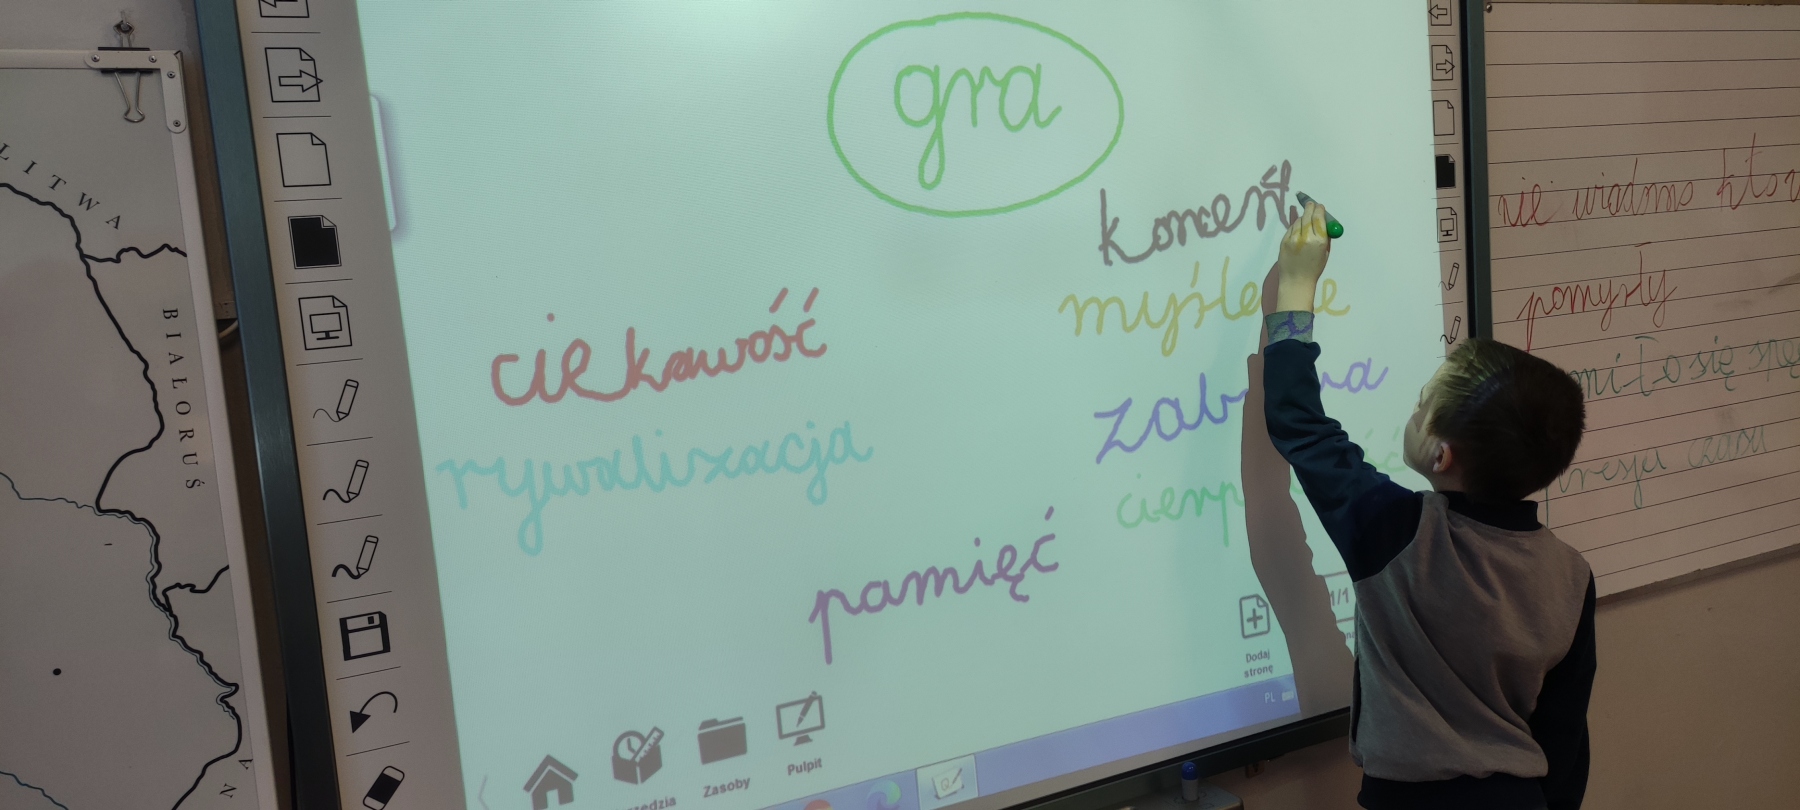 LITWA
BIAŁORUŚ
gra
koncent
myślenie
ciekawość
zabawa
rywalizacja
pamięć
Dodaj
stronę
1/1
PL
Zasoby
Pulpit
nie wiadomo kto
pomysły
miło się
presja czasu